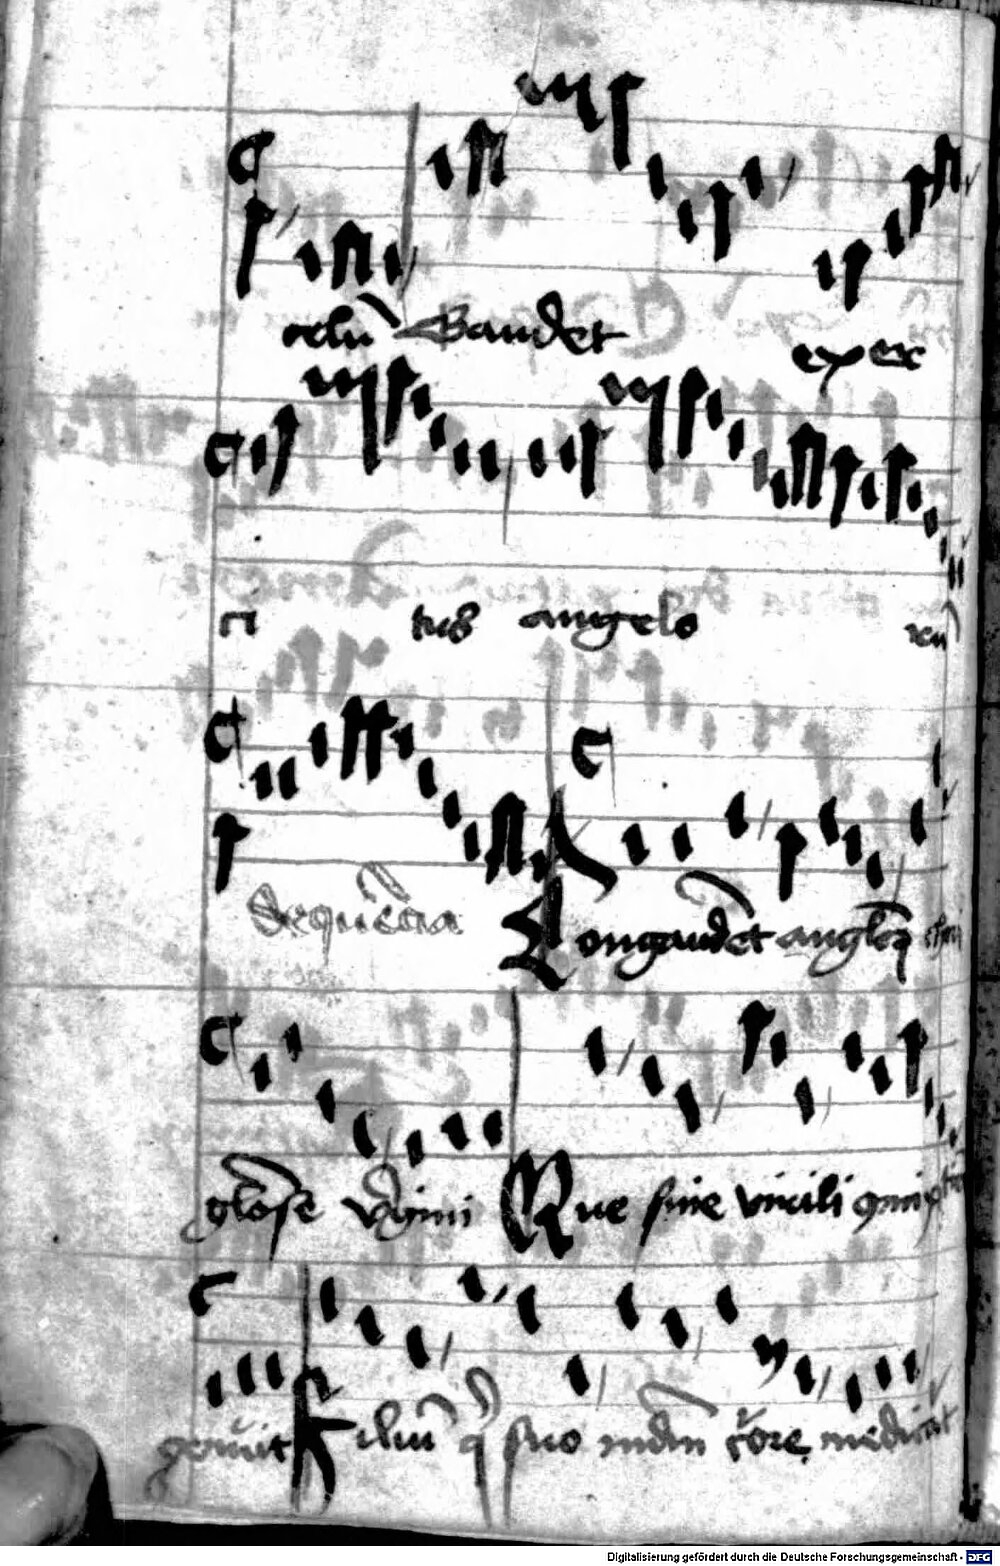 celū Gaudet exer
ci tus angelo rū
Sequēcia Congaudēt anglo℞ chori
gloῑse v̄gini Que sine virili ꝯmixtōe
genuit Filiū q̄ suo mūdū c̄ore medicat
Digitalisierung gefördert durch die Deutsche Forschungsgemeinschaft - DFG